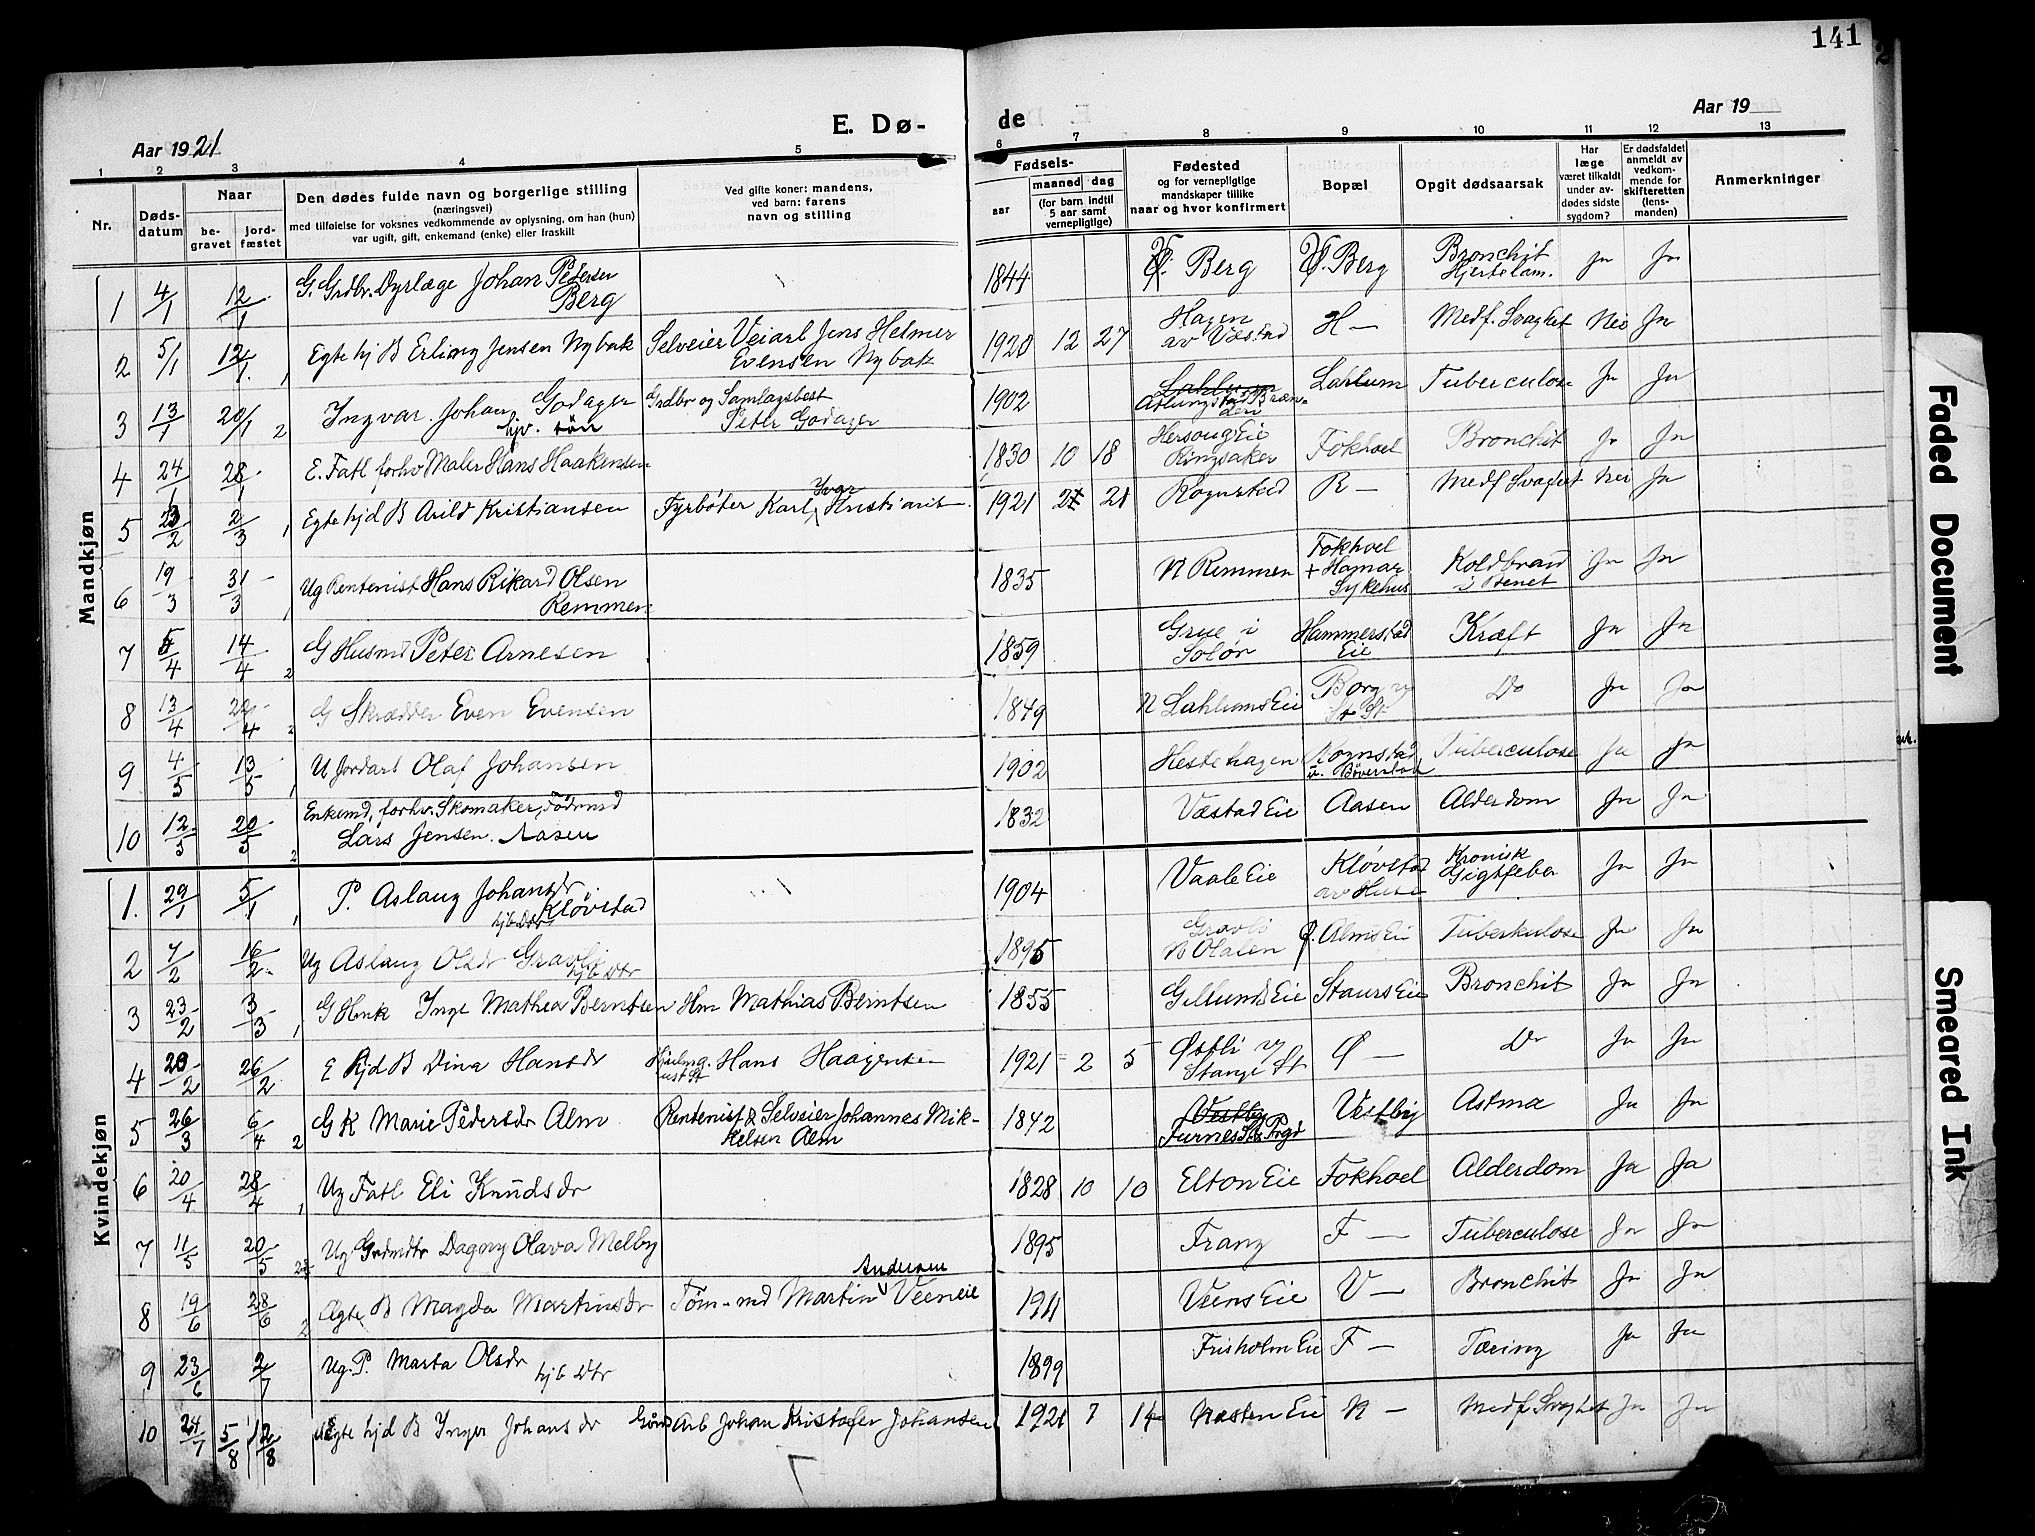 141
Aar 1921
E. Dø-
de
Aar 19
1 2 3 4 5 6 7 8 9 10 11 12 13
Nr.
Døds-
datum
Naar
be-
gravet
jord-
fæstet
Den dødes fulde navn og borgerlige stilling
(næringsvei)
med tilføielse for voksnes vedkommende av oplysning, om han (hun)
var ugift, gift, enkemand (enke) eller fraskilt
Ved gifte koner: mandens,
ved barn: farens
navn og stilling
Fødsels-
aar
maaned dag
(for barn indtil
5 aar samt
vernepligtige)
Fødested
og for vernepligtige
mandskaper tillike
naar og hvor konfirmert
Bopæl
Opgit dødsaarsak
Har
læge
været tilkaldt
under av-
dødes sidste
sygdom?
Er dødsfaldet
anmeldt av
vedkom-
mende for
skifteretten
(lens-
manden)
Anmerkninger
Mandkjøn
1 4/1 12/1 G. Grdbr. Dyrlæge Johan Petersen Berg 1844 Berg Berg Bronchit Hjertelam. Ja Ja
2 5/1 12/1 Egte hj B Erling Jensen Nybak Selveier Veiarb Jens Helmer Evensen Nybak 1920 12 27 Hagen av Væstad H — Medf. Svaghet Nei Ja
3 13/1 20/1 2 Ingvar Johan Godager hjv. søn Grdbr og Samlagsbest Peter Godager 1902 Lahlum Tuberculose Ja Ja
4 24/1 28/1 E. Fatl forhv Maler Hans Haakensen 1830 10 18 Hersoug Eie Ringsaker Fokhoel Bronchit Ja Ja
5 23/2 2/3 1 Egte hjd B Arild Kristiansen Fyrbøter Karl Ivar Kristians. 1921 2 21 Rognstad R — Medf Svaghet Nei Ja
6 19/3 31/3 1 Ug Rentenist Hans Rikard Olsen Remmen 1835 N Remmen Fokhoel + Hamar Sykehus Koldbrand i Benet Ja Ja
7 5/4 14/4 2 G Husmd Peter Arnesen 1859 Grue i Solør Hammerstad Eie Kræft Ja Ja
8 13/4 22/4 2 G Skrædder Even Evensen 1849 N Lahlums Eie Borg v/ St St Do Ja Ja
9 4/5 13/5 1 U Jordarb Olaf Johansen 1902 Hestehagen Rognstad u. Bøverstad Tuberculose Ja Ja
10 12/5 20/5 2 Enkemd, forhv. Skomaker, Fødrmd Lars Jensen Aasen 1832 Væstad Eie Aasen Alderdom Ja Ja
Kvindekjøn
1. 29/1 5/1 1 P. Aslaug Johansdr Kløvstad hjb Dtr 1904 Vaale Eie Kløvstad av Huse Kronisk Gigtfeber Ja Ja
2 7/2 16/2 Ug Aslaug Olsdr Gravli hjb Dtr 1895 Gravli N Olalen Alms Eie Tuberkulose Ja Ja
3 23/2 3/3 1 G Hmk Inge Mathea Berntsen Hm Mathias Berntsen 1855 Gillunds Eie Staurs Eie Bronchit Ja Ja
4 20/2 26/2 E hjd B Dina Hansdr Hans Haagensen 1921 2 5 Østli v/ Stange St Ø — Do Ja Ja
5 26/3 6/4 2 G K Marie Pedersdr Alm Rentenist & Selveier Johannes Mik- kelsen Alm 1842 Vestby Furnes Prgd Vestby Astma Ja Ja
6 20/4 28/4 1 Ug Fatl Eli Knudsdr 1828 10 10 Elton Eie Fokhoel Alderdom Ja Ja
7 11/5 20/5 Ug Grdmdtr Dagny Olava Melby 1895 Frang F — Tuberculose Ja Ja
8 19/6 28/6 2 Ægte B Magda Martinsdr Tøm-md Martin Andersen Veeneie 1911 Veens Eie V — Bronchit Ja Ja
9 23/6 2/7 Ug. P. Marta Olsdr hjb Dtr 1899 Frisholm Eie F — Tæring Ja Ja
10 24/7 5/8 12/8 Ægte hjd B Inger Johansdr Arb Johan Kristofer Johansen 1921 7 14 Næsten Eie N — Medf Svaghet Ja Ja
Faded Document
Smeared Ink